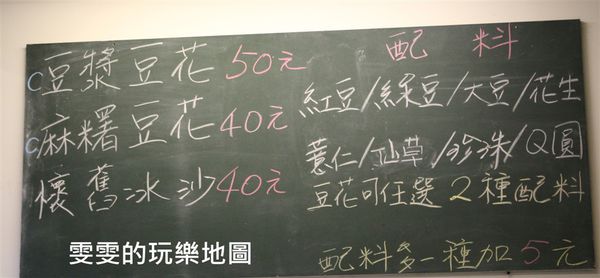 C豆漿豆花50元
C麻糬豆花40元
懷舊冰沙40元
配料
紅豆/綠豆/大豆/花生
薏仁/仙草/珍珠/Q圓
豆花可任選2種配料
配料多一種加5元
雯雯的玩樂地圖